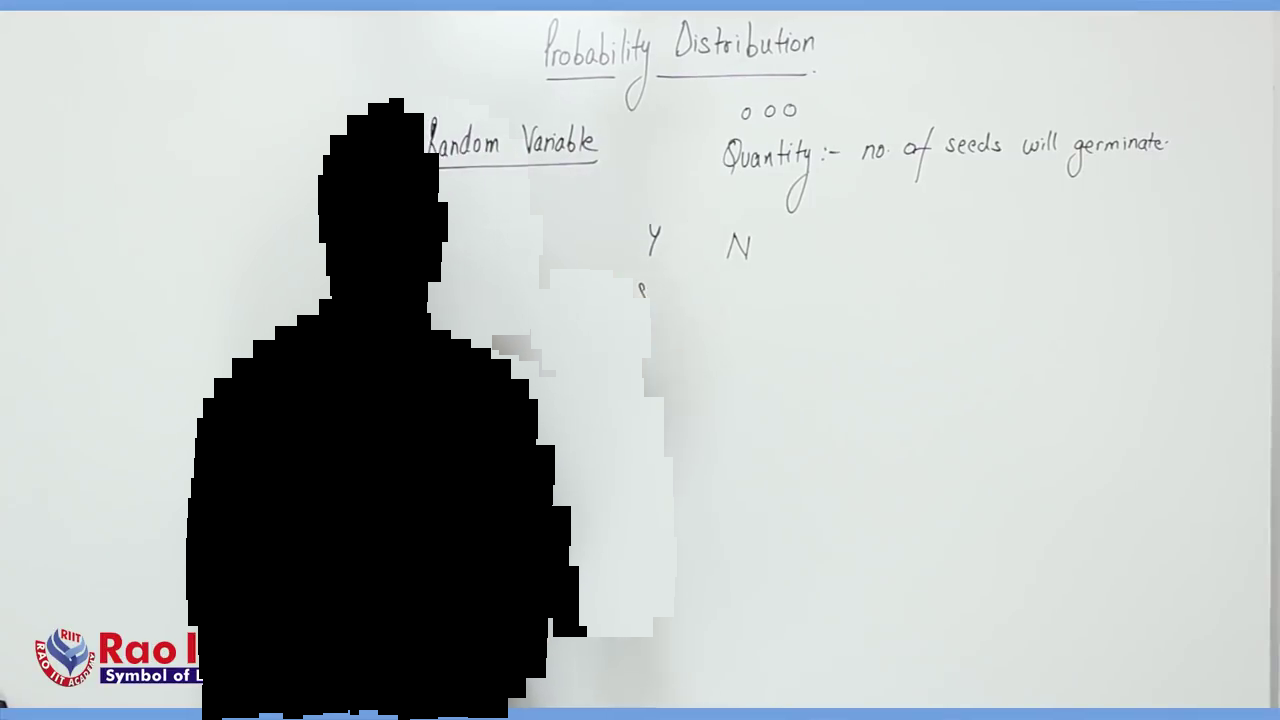 Probability Distribution
Random Variable
Quantity :- no. of seeds will germinate.
Y N
RIIT
RAO IIT ACADEMY
Rao I
Symbol of L